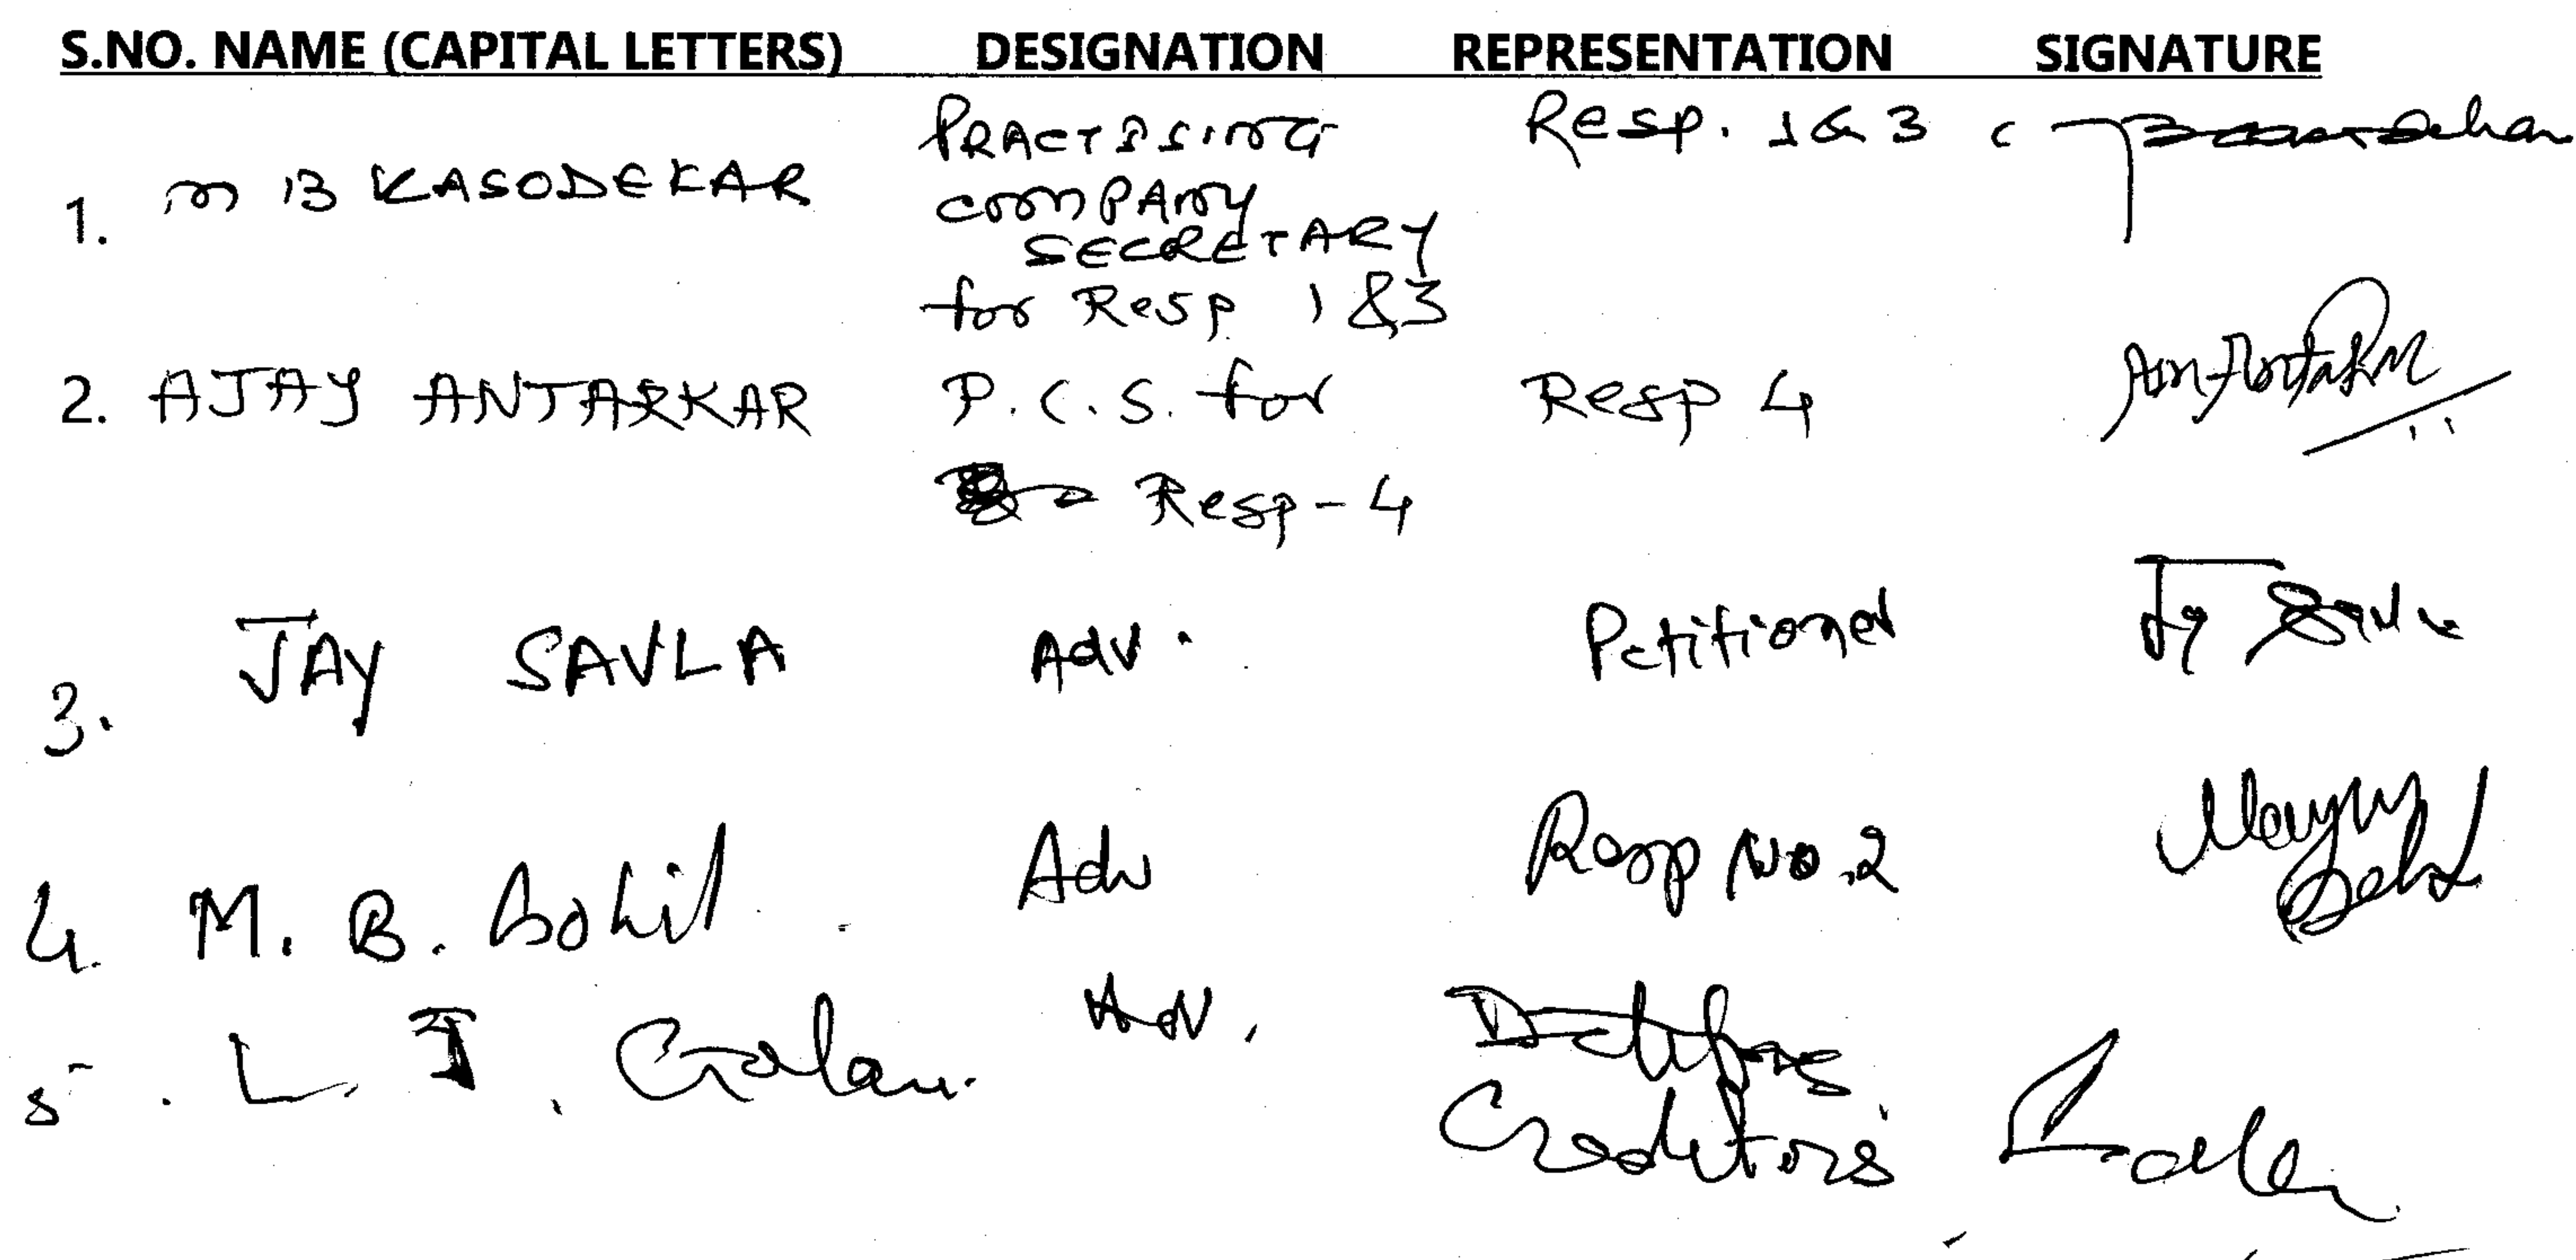 S.NO. NAME (CAPITAL LETTERS) DESIGNATION REPRESENTATION SIGNATURE
1. M B KASODEKAR PRACTISING Resp. 1 & 3
COMPANY
SECRETARY
for Resp 1 & 3
2. AJAY ANTARKAR P.C.S. for Resp 4
Resp-4
3. JAY SAVLA Adv. Petitioner Jay Savla
4. M. B. Adv Resp No.2
5. L. J. Adv.
Creditors